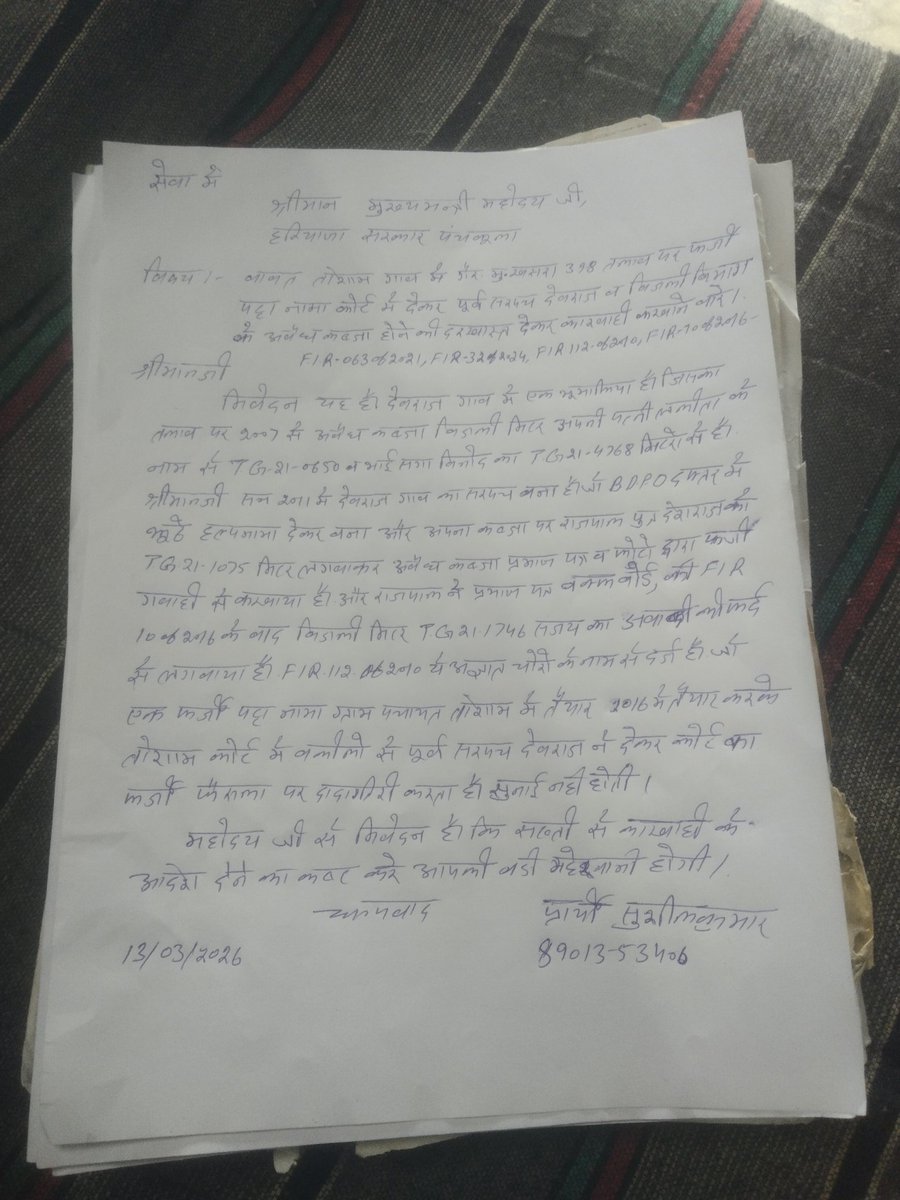 सेवा में
श्रीमान मुख्यमन्त्री महोदय जी,
हरियाणा सरकार पंचकुला
विषय :- बाबत तोशाम गाव में गैर मु. खसरा 398 तलाव पर फर्जी
पट्टा नामा कोर्ट में देकर पूर्व सरपंच देवराज व बिजली विभाग
के अवैध कब्जा होने की दरखास्त देकर कारवाही करवाने बारे।
FIR-063 of 2021, FIR-328 2024, FIR 112 of 2010, FIR-10 of 2016-
श्रीमानजी
निवेदन यह है। देवराज गाव में एक भूमाफिया है। जिसका
तलाव पर 2007 से अवैध कब्जा बिजली मिटर अपनी पत्नी ललीता के
नाम से TG-21-0650 व भाई सगा विनोद का TG-21-4768 मिटरो से है।
श्रीमानजी सन 2011 में देवराज गाव का सरपंच बना है। जो BDPO दफ्तर में
झूठे हल्पनामा देकर बना और अपना कब्जा पर राजपाल पुत्र देशराज को
TG-21-1075 मिटर लगवाकर अवैध कब्जा प्रमाण पत्र व फोटो द्वारा फर्जी
गवाही से करवाया है। और राजपाल ने प्रमाण पत्र वक्फ बोर्ड, की FIR
10 of 2016 के बाद बिजली मिटर TG-21-1746 संजय का
से लगवाया है। FIR-112 of 2010 ये अज्ञात चोरो के नाम से दर्ज है। जो
एक फर्जी पट्टा नामा ग्राम पंचायत तोशाम में तैयार 2016 में तैयार करके
तोशाम कोर्ट में वकीलो से पूर्व सरपंच देवराज ने देकर कोर्ट का
फर्जी फैसला पर दादागीरी करता है। सुनाई नही होती।
महोदय जी से निवेदन है कि सख्ती से कारवाही के
आदेश देने का कष्ट करे आपकी बडी मेहरबानी होगी।
धन्यवाद
प्रार्थी सुशीलकुमार
13/03/2026
89013-53406